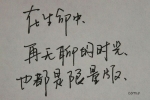 在生命中.
再无聊的时光.
也都是限量版.